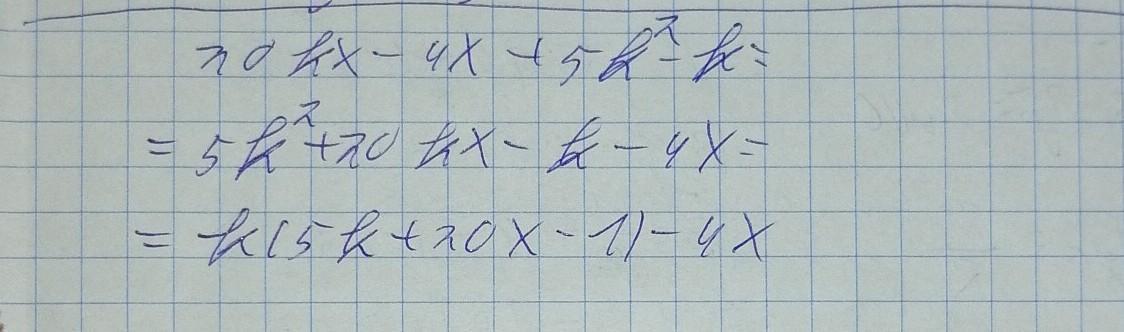 20kx - 4x + 5k² - k =
= 5k² + 20kx - k - 4x =
= k(5k + 20x - 1) - 4x